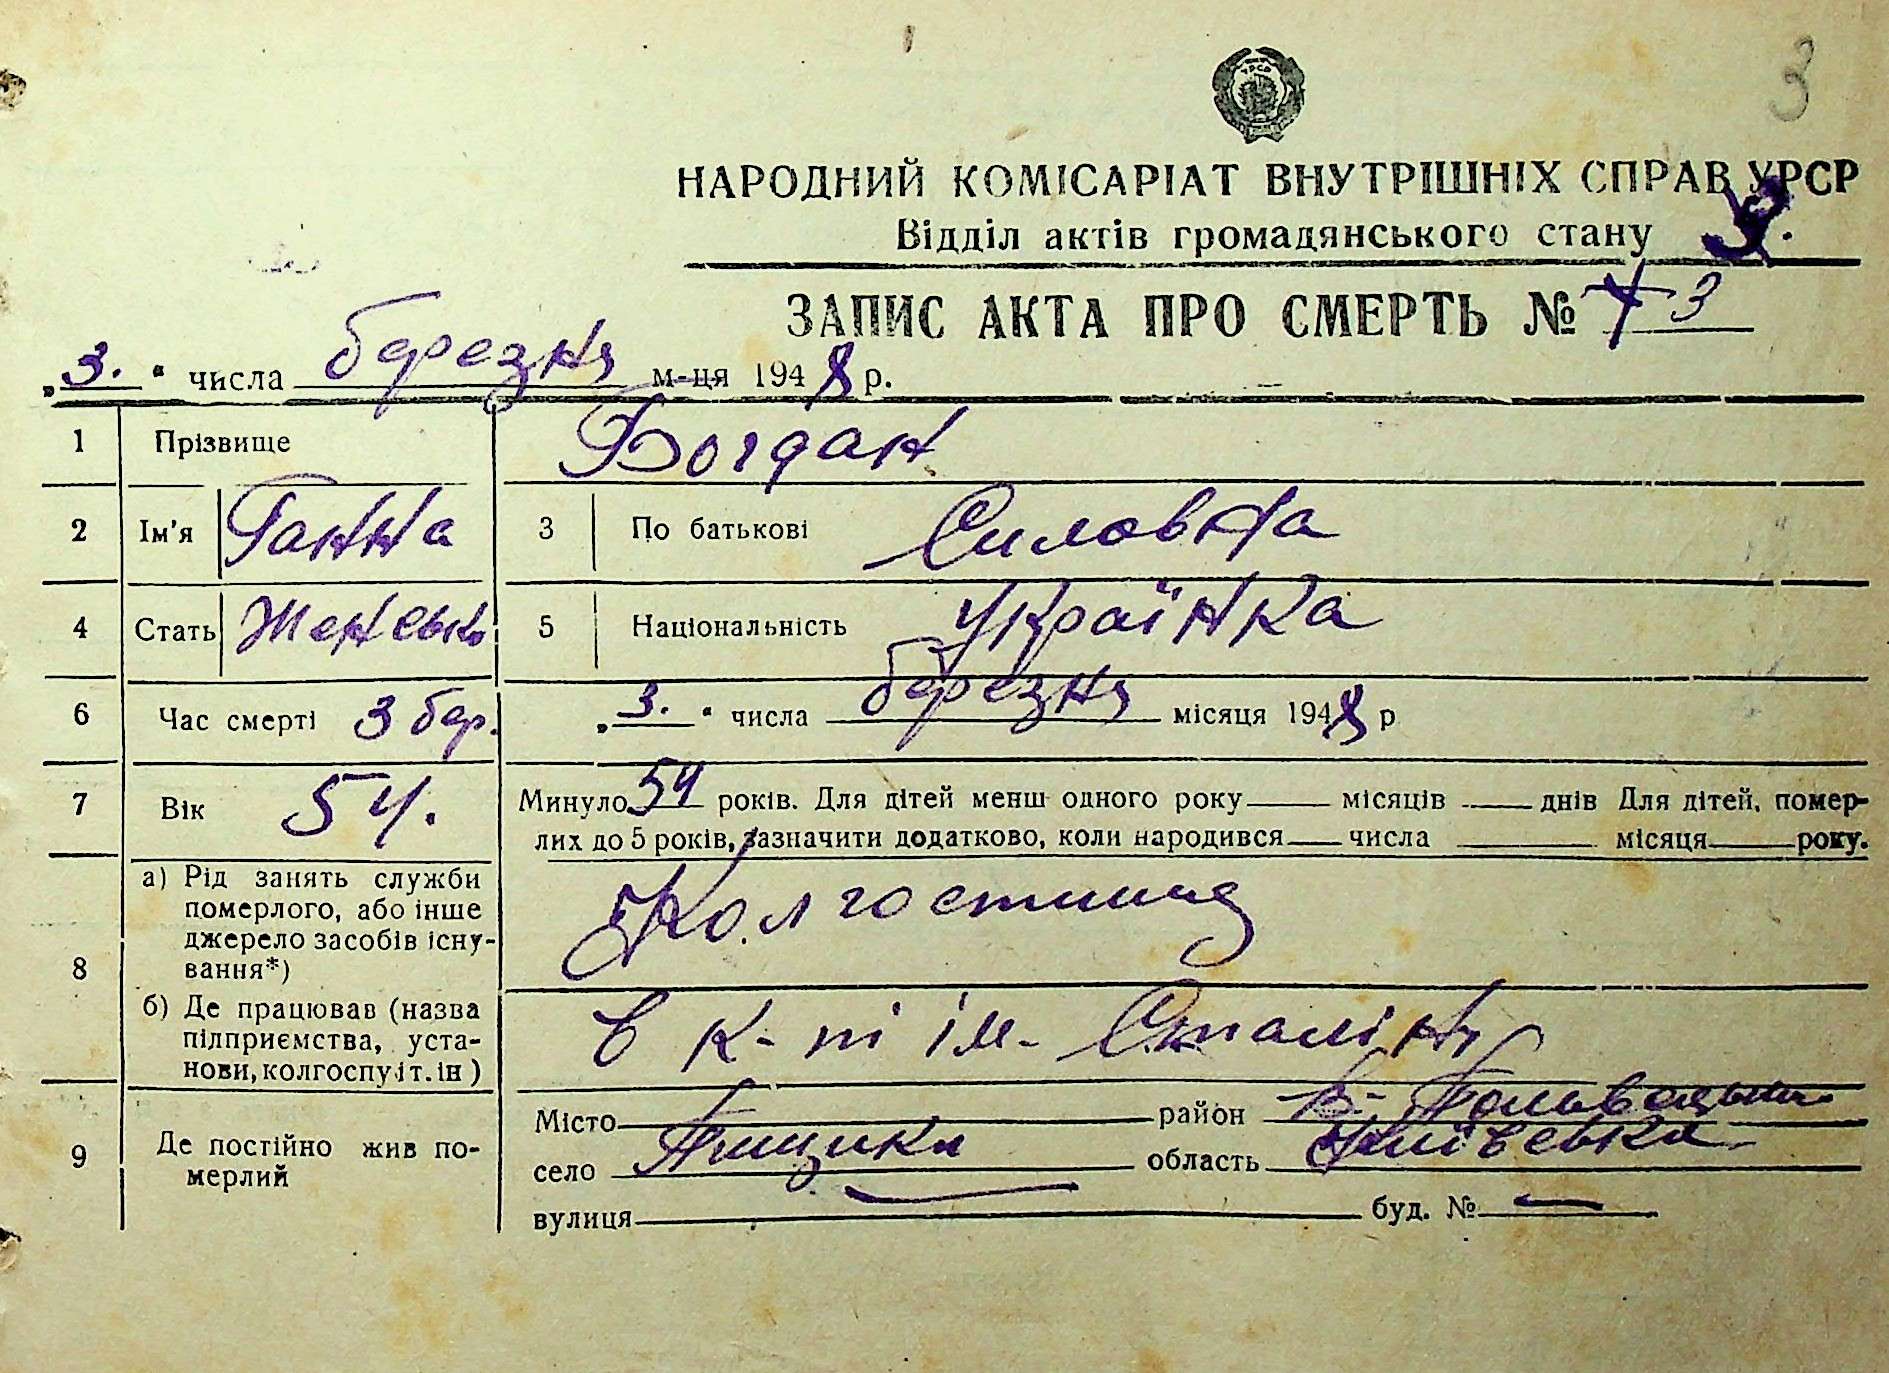 3
УРСР
НАРОДНИЙ КОМІСАРІАТ ВНУТРІШНІХ СПРАВ УРСР
Відділ актів громадянського стану
ЗАПИС АКТА ПРО СМЕРТЬ № 3
„3.“ числа березня м-ця 1948 р.
1 Прізвище Богдан
2 Ім'я Ганна 3 По батькові Силовна
4 Стать Женсько 5 Національність Українка
6 Час смерті 3 бер. „3.“ числа березня місяця 1948 р
7 Вік 54. Минуло 54 років. Для дітей менш одного року місяців днів Для дітей, помер-
лих до 5 років, зазначити додатково, коли народився числа місяця року.
8 а) Рід занять служби
померлого, або інше
джерело засобів існу-
вання*)
Колгоспниця
б) Де працював (назва
підприємства, уста-
нови, колгоспу і т. ін)
в к-пі ім. Сталіну
9 Де постійно жив по-
мерлий
Місто район В-
село Пищики область Київська
вулиця буд. №